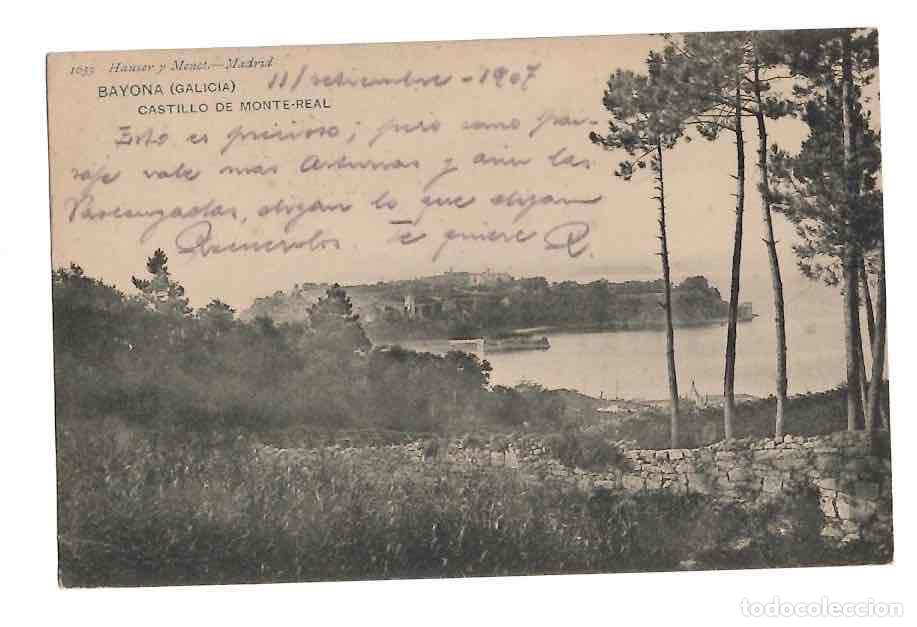 1639 Hauser y Menet.—Madrid
11/setiembre-1907
BAYONA (GALICIA)
CASTILLO DE MONTE-REAL
Esto es precioso; pero como pai-
saje vale más Asturias y aún las
Vascongadas, digan lo que digan
Recuerdos. Te quiere R.
todocoleccion